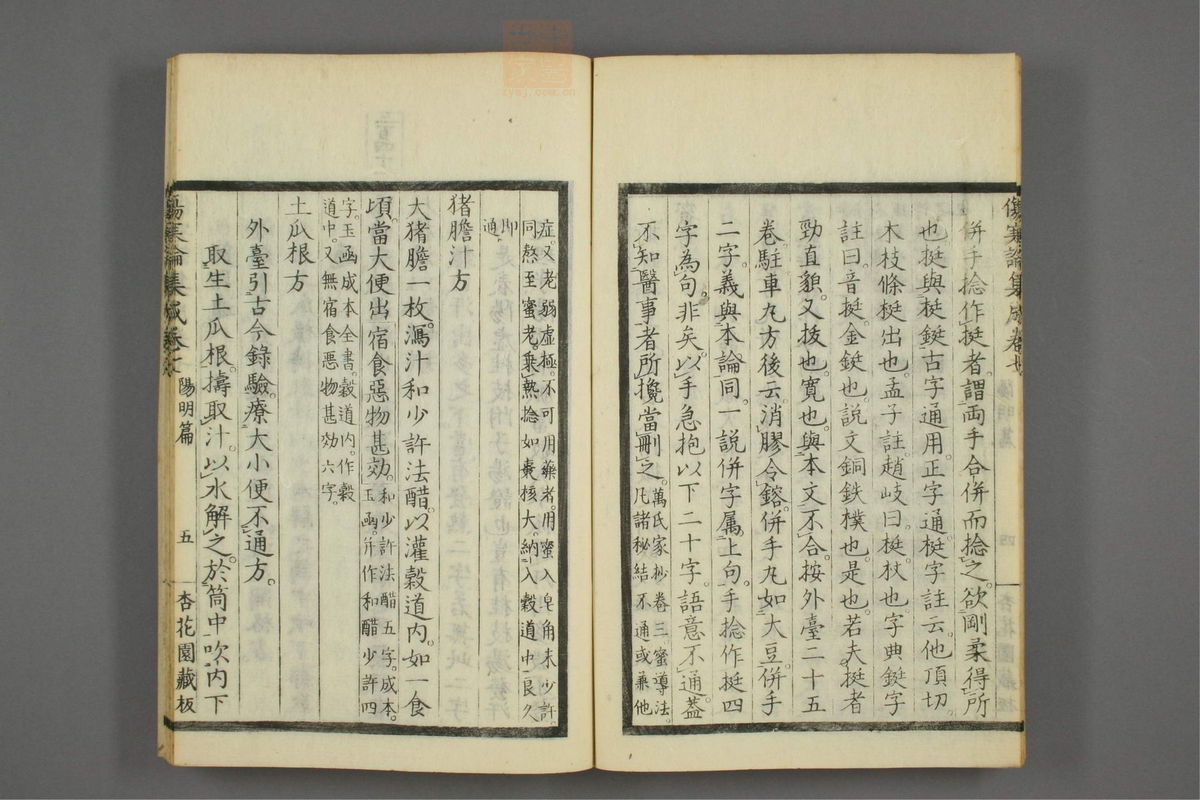 傷寒論集成卷七
併手捻作挺者。謂兩手合併而捻之。欲剛柔得所
也挺與梃鋌古字通用。正字通梃字註云他頂切。
木枝條梃出也。孟子註趙岐曰。梃杖也。字典鋌字
註曰。音挺。金鋌也。說文銅鉄樸也。是也。若夫挺者
勁直貌。又拔也。寬也。與本文不合。按外臺二十五
卷。駐車丸方後云。消膠令鎔。併手丸如大豆。併手
二字義。與本論同。一說併字属上句。手捻作挺四
字為句。非矣。以手急抱以下二十字。語意不通。蓋
不知醫事者所攙。當刪之。
萬氏家抄卷三。蜜導法。
凡諸秘結不通或兼他
症。又老弱虛極。不可用藥者。用蜜入皂角末少許。
同熬至蜜老。乘熱捻如棗核大。納入穀道中。良久
即
通
猪膽汁方
大猪膽一枚。瀉汁和少許法醋。以灌穀道内。如一食
頃。當大便出宿食惡物甚効。
和少許法醋五字。成本。
玉函。并作和醋少許四
字。玉函成本全書。穀道内。作穀
道中。又無宿食惡物甚効六字。
土瓜根方
外臺引古今錄驗。療大小便不通方。
取生土瓜根。擣取汁。以水解之。於筒中吹内下
陽明篇
五
杏花園藏板
zysj.com.cn